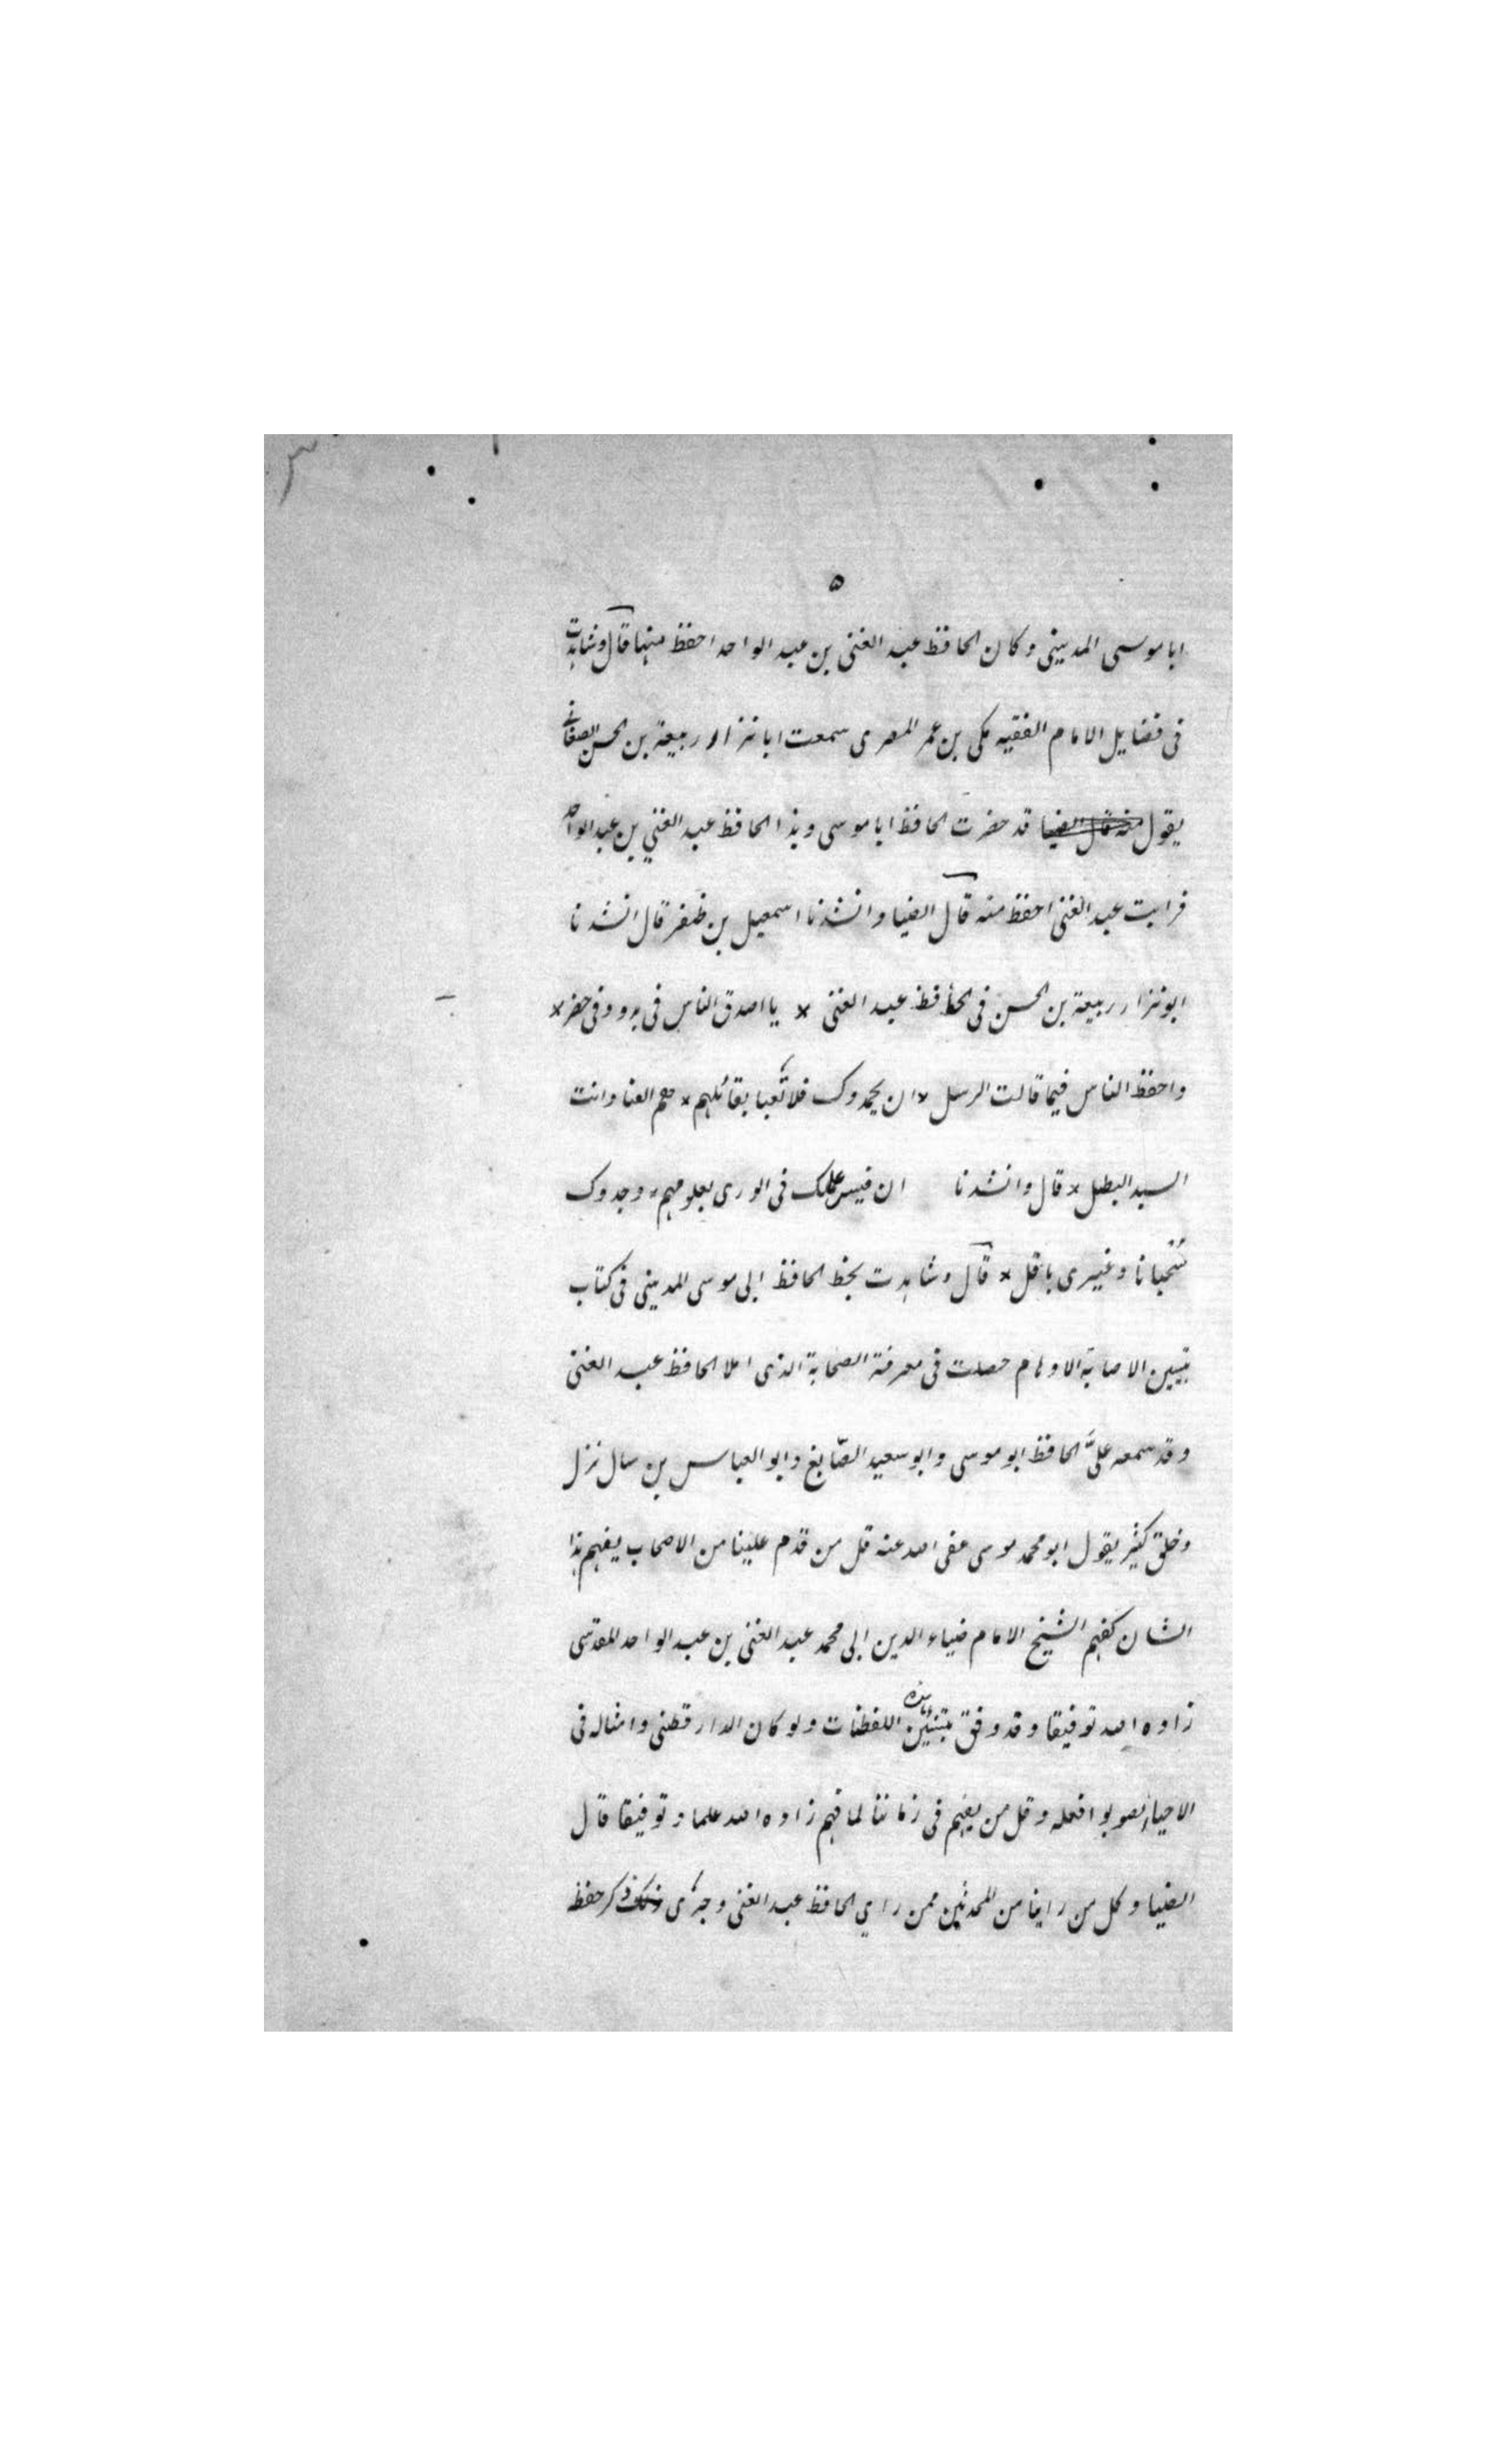 ۵
ابا موسى المديني وكان الحافظ عبد الغنى بن عبد الواحد احفظ منهما قال وشاهدت
فى فضايل الامام الفقيه مكى بن عمر المصرى سمعت ابا نزار ربيعة بن الحسن الصغانى
يقول قد حضرت الحافظ ابا موسى وهذا الحافظ عبد الغني بن عبد الواحد
فرايت عبد الغنى احفظ منه قال الضيا وانشدنا اسمعيل بن ظفر قال انشدنا
ابو نزار ربيعة بن الحسن فى الحافظ عبد الغنى × يا اصدق الناس فى بدو وفى حضر ×
واحفظ الناس فيما قالت الرسل × ان يحمدوك فلا تعبا بقائلهم × العنا وانت
السيد البطل × قال وانشدنا ان قيس علمك فى الورى بعلومهم × وجدوك
سحبانا وغيرى باقل × قال وشاهدت بخط الحافظ ابى موسى المدينى فى كتاب
تبيين الاصابة الاوهام حصلت فى معرفة الصحابة الذى املا الحافظ عبد الغنى
وقد سمعه علىَّ الحافظ ابو موسى وابو سعيد الصّايغ وابو العباس بن
وخلق كثير يقول ابو محمد موسى عفى الله عنه قل من قدم علينا من الاصحاب يفهم هذا
الشان كفهم الشيخ الامام ضياء الدين ابى محمد عبد الغنى بن عبد الواحد المقدسى
زاده الله توفيقا وقد وفق بتبيين هذه اللفظات ولو كان الدارقطنى وامثاله فى
الاحياء لصوبوا فعله وقل من يفهم فى زماننا لما فهم زاده الله علما وتوفيقا قال
الضيا وكل من راينا من المحدثين ممن راي الحافظ عبد الغنى وجرى ذكر حفظ